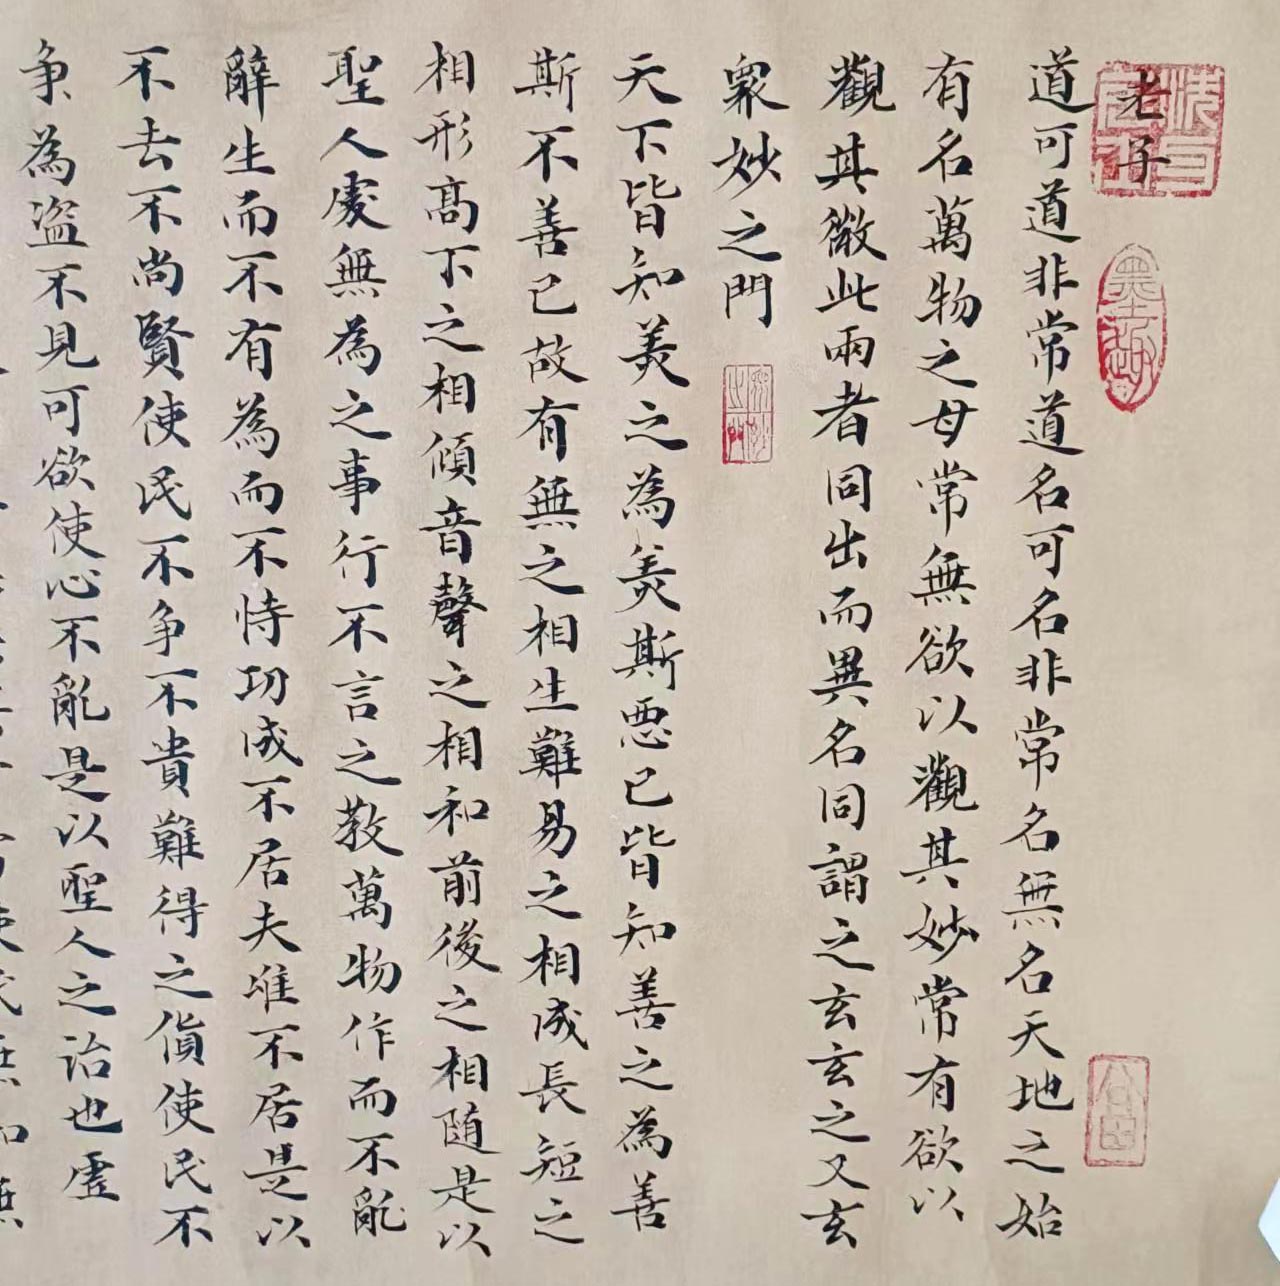 老子
道可道非常道名可名非常名無名天地之始
有名萬物之母常無欲以觀其妙常有欲以
觀其徼此兩者同出而異名同謂之玄玄之又玄
衆妙之門
天下皆知美之為美斯惡已皆知善之為善
斯不善已故有無之相生難易之相成長短之
相形高下之相傾音聲之相和前後之相隨是以
聖人處無為之事行不言之教萬物作而不亂
辭生而不有為而不恃功成不居夫唯不居是以
不去不尚賢使民不争不貴難得之貨使民不
争為盜不見可欲使心不亂是以聖人之治也虛